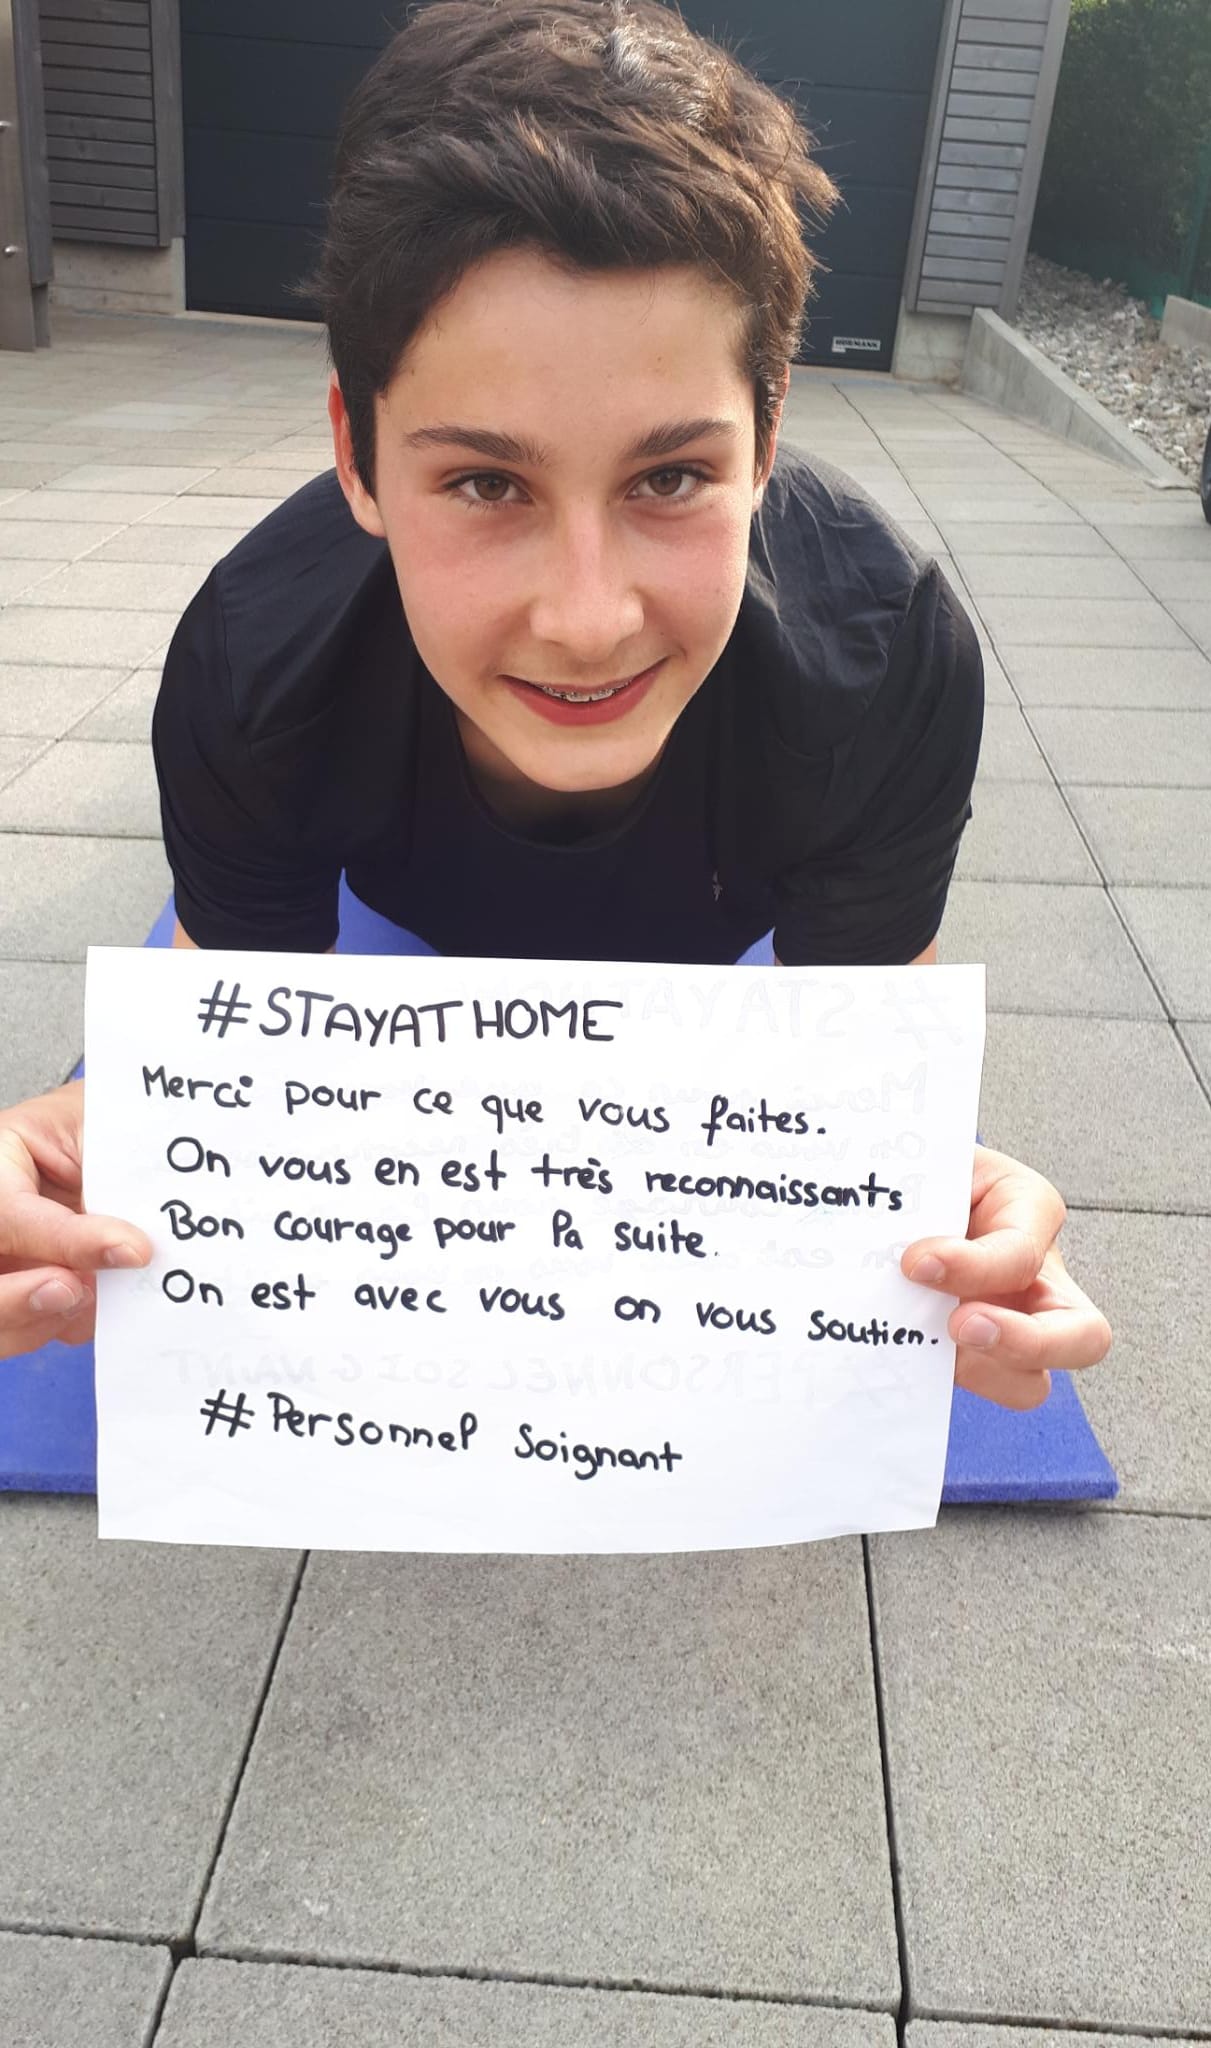 HÖRMANN
#STAYATHOME
Merci pour ce que vous faites.
On vous en est très reconnaissants
Bon courage pour la suite.
On est avec vous on vous soutien.
#Personnel Soignant